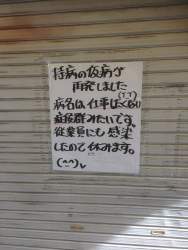 持病の仮病が
再発しました
(TT)
病名は仕事したくない
症候群みたいです。
従業員にも感染
したので休みます。
(^^)v